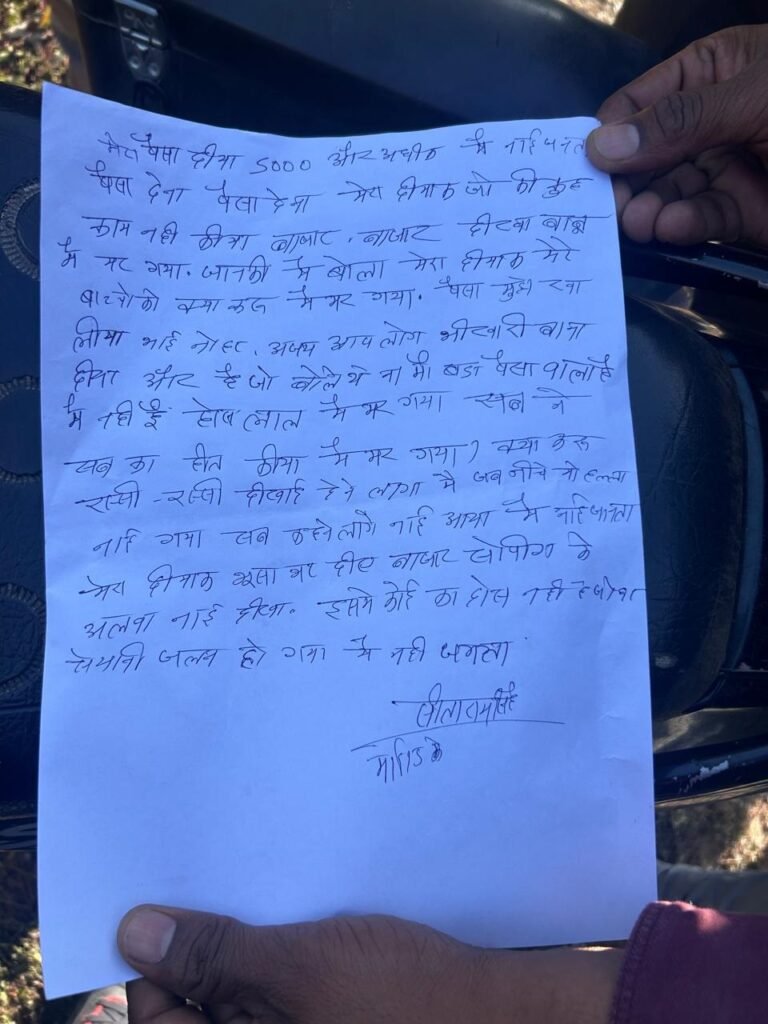 मेरा पैसा दीया 5000 और अधीक मै नाई जनता
पैसा देना पैसा देना मेरा दीमाक जो की कुछ
काम नही कीया बाजार. बाजार दीखा
मै मर गया. जानकी मै बोला मेरा दीमाक मेरे
बाच्चो को क्या करू मै मर गया. पैसा मुझे
लीया भाई नोहर. अजय आप लोग भीखारी बाना
दीया और है जो बोले थे ना मै बडा पैसा वाला है
मै नही हूँ लाल मै मर गया सब ने
सब का हीत कीया मै मर गया) क्या करू
रास्सी - रास्सी दीखाई देने लागा मै जब नीचे मोहल्ला
नाई गया सब कहने लागे नाई आया मै नाई जानता
मेरा दीमाक भूसा भर दीए बाजार सोपींग के
अलवा नाई दीखा. इसमे कोई का दोस नही है
जलन हो गया मै नही जनता
सीताराम सिंह